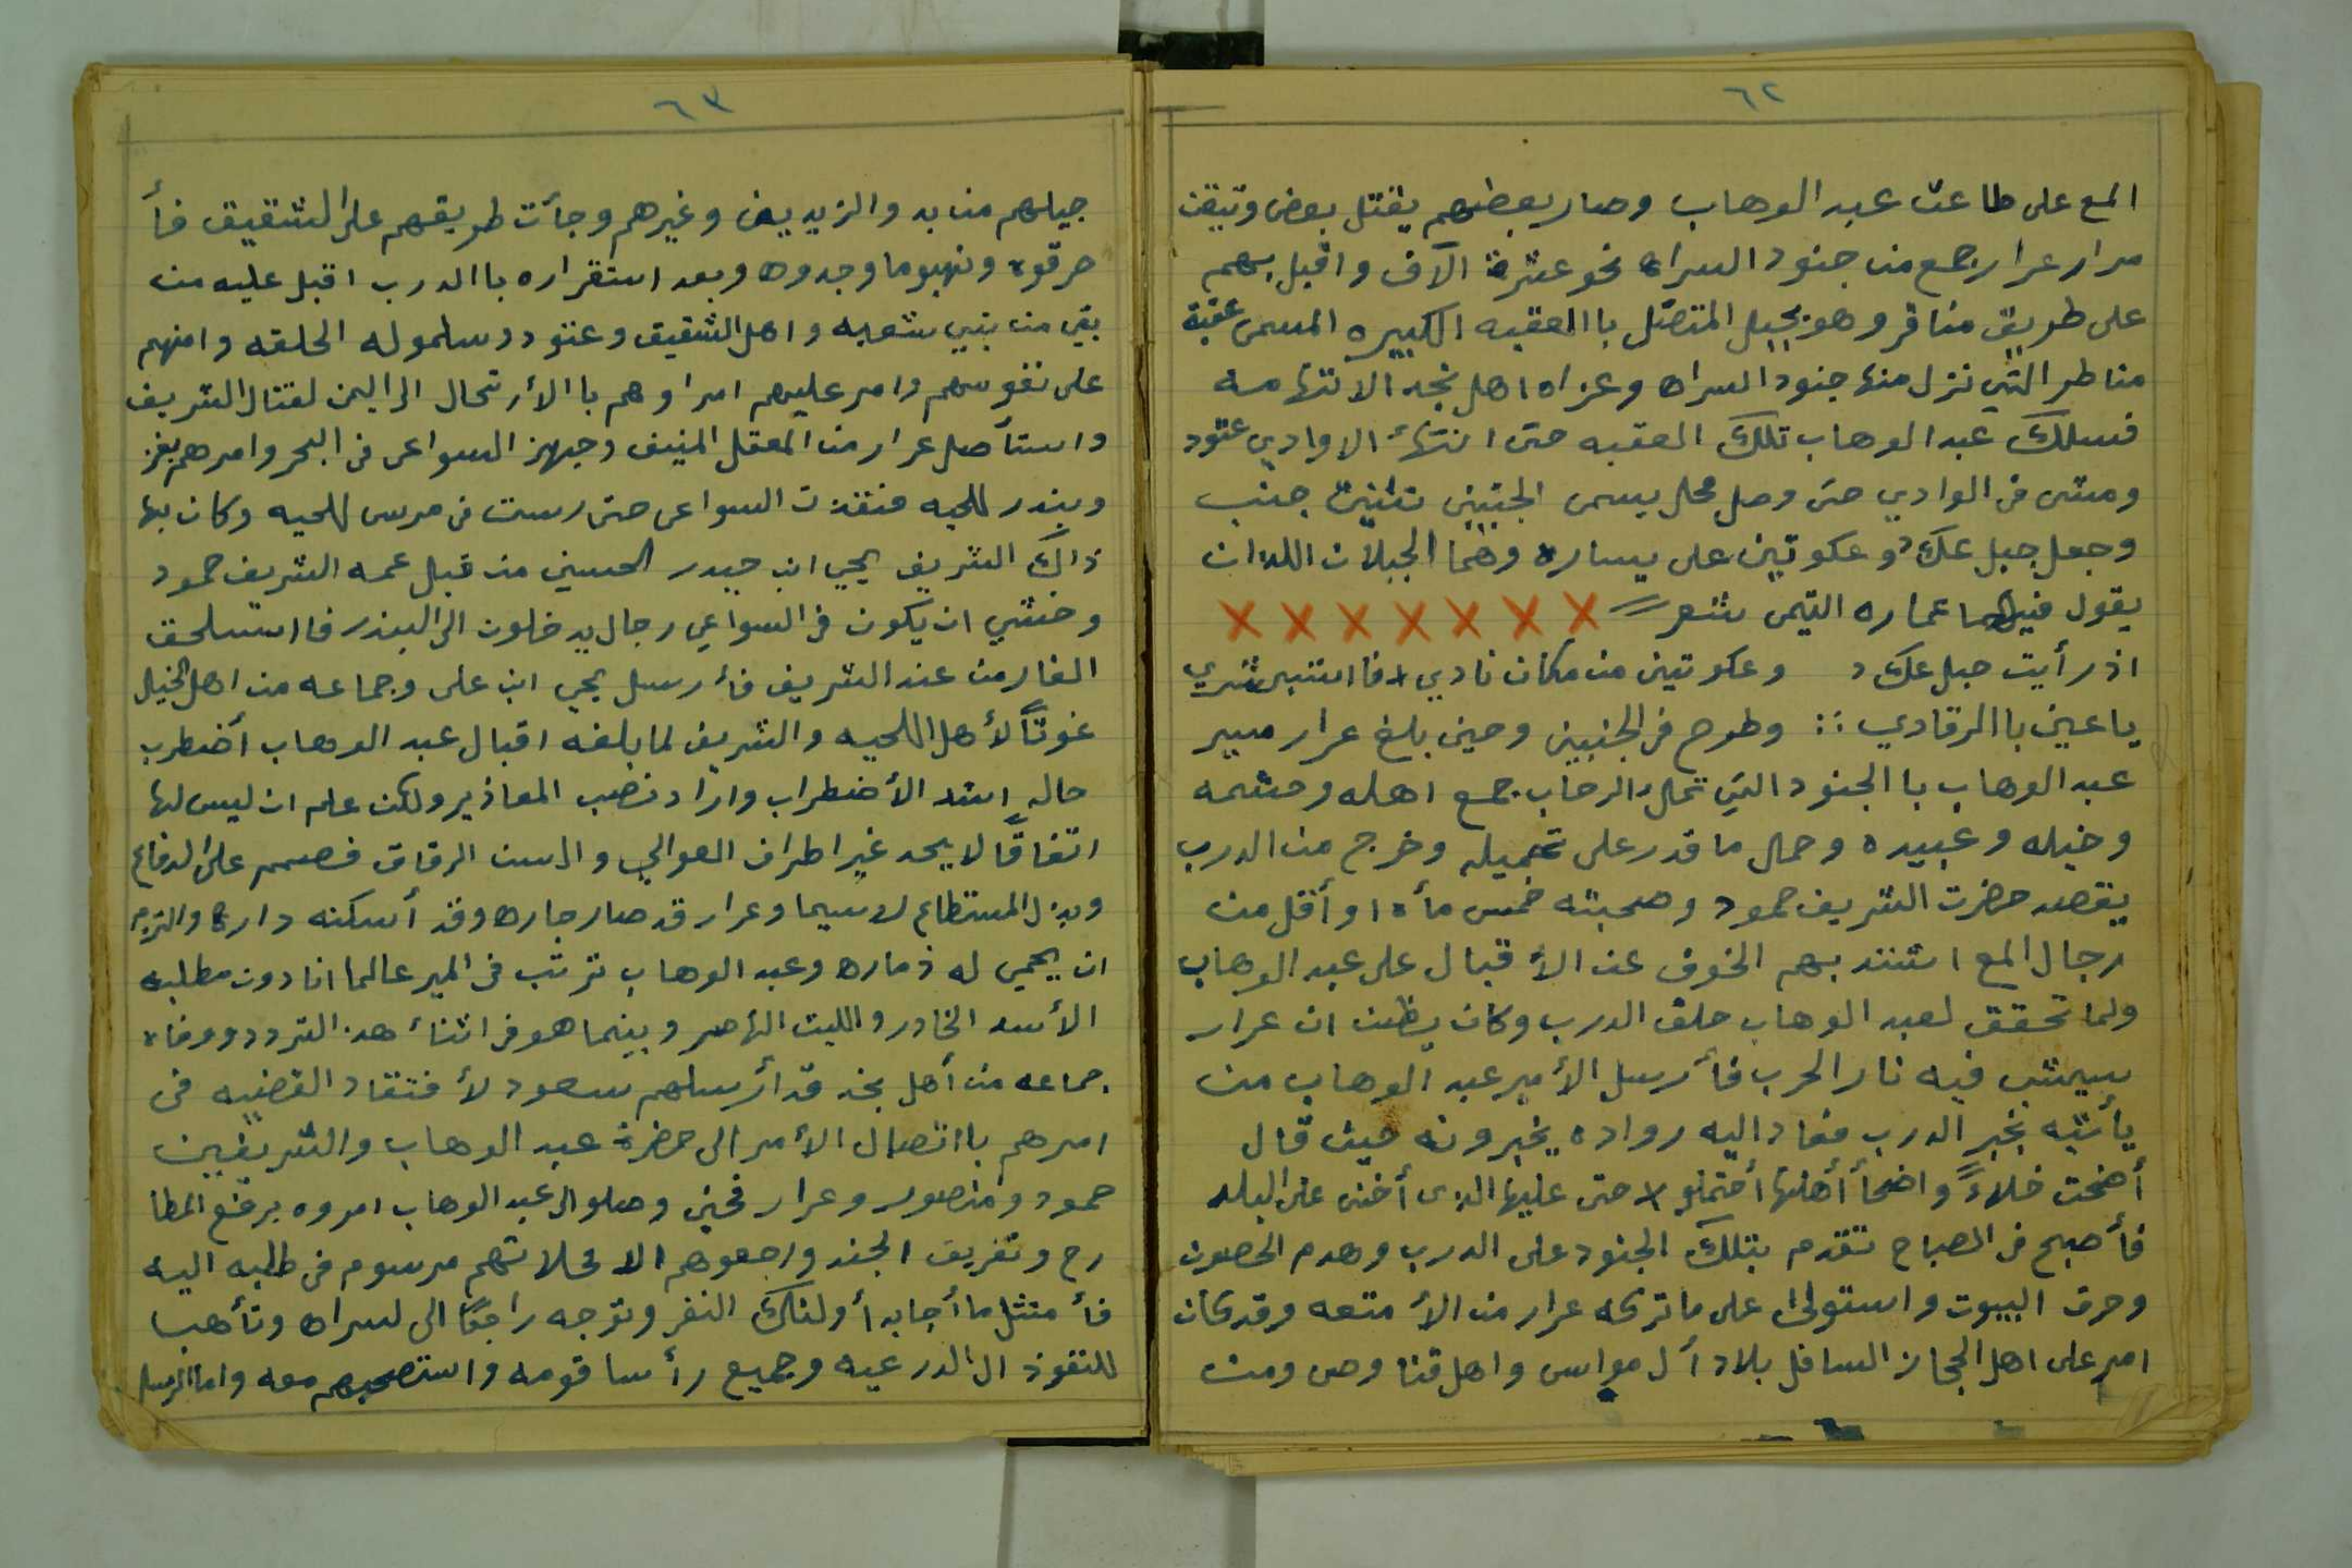 ٦٢
المع على طاعت عبد الوهاب وصار بعضهم يقتل بعض وتيقن
مرار عرار جمع من جنود السراه نحو عشرة الآف واقبل بهم
على طريق مناقر وهو بجبل المتصل باالعقبه الكبيره المسمى عقبة
مناظر التي نزل منها جنود السراه وغزاه اهل نجد الا تتهامه
فسلك عبد الوهاب تلك العقبه حتى انتهأ الا وادي عتود
ومشى في الوادي حتى وصل محل يسمى الجنبين تثنيت جنب
وجعل جبل عكاد وعكوتين على يساره وهما الجبلان اللذان
يقول فيهما عماره اليمى شعر
اذ رأيت جبل عكاد وعكوتين من مكان نادي فا استبسشري
ياعين باالرقادي وطرح في الجنبين وحين بلغ عرار مسير
عبد الوهاب با الجنود التي تملأ الرحاب جمع اهله وحشمه
وخيله وعبيده وحمل ما قدر على تحميله وخرج من الدرب
يقصد حضرت الشريف حمود وصحبته خمس مأه او أقل من
رجال المع اشتد بهم الخوف عن الأقبال على عبد الوهاب
ولما تحقق لعبد الوهاب خلق الدرب وكان يظن ان عرار
سيشب فيه نار الحرب فأرسل الأمير عبد الوهاب من
يأتيه بخبر الدرب فعاد اليه رواده يخبرونه حيث قال
أضحت خلاءً واضحأ أهلها أحتملو احنى عليها الذى أخنى على البلد
فأصبح في الصباح تقدم بتلك الجنود على الدرب وهدم الحصون
وحرق البيوت واستولى على ما تركه عرار من الأمتعه وقد كان
امير على اهل الحجاز السافل بلاد أل مواس واهل قنا وص ومن
٦٣
جيلهم من بد والزيديين وغيرهم وجأت طريقهم على الشقيق فأ
حرقوه ونهبوما وجدوه وبعد استقراره باالدرب اقبل عليه من
بقي من بني شعبه واهل الشقيق وعتود وسلموله الحلقه وامنهم
على نفوسهم وامر عليهم امراوهم با الأرتحال الى اليمن لقتال الشريف
واستأصل عرار من المعقل المنيف وجهز السواعى في البحر وامرهم بغز
وبندر اللحيه فنفذت السواعى حتى رست في مرسى اللحيه وكان بها
ذاك الشريف يحي ابن حيدر الحسيني من قبل عمه الشريف حمود
وخشي ان يكون في السواعي رجال يدخلون الى البندر فااستلحق
الغار من عند الشريف فأرسل يحي ابن على وجماعه من اهل الخيل
غوثاً لأهل اللحيه والشريف لما بلغه اقبال عبد الوهاب أضطرب
حاله اشد الأضطراب واراد نصب المعاذير ولكن علم ان ليس لها
اتفاقًا لا يحد غير اطراف العوالي والسن الرقاق فصمم على الدفاع
وبذل المستطاع لاسيما وعرار قد صار جاره وقد أسكنه داره والتزم
ان يحمي له ذماره وعبد الوهاب ترتب في المير عالما انا دون مطلبه
الأسد الخادر والليث الهاصر وبينما هو في اثنأ هذ التردد ووفاه
جماعه من أهل نجد قد أرسلهم سعود لأفتقاد القضيه في
امرهم بااتصال الأمر الى حضرة عبد الوهاب والشريفين
حمود ومنصور وعرار فحين وصلو الى عبد الوهاب امروه برفع المطا
رح وتفريق الجند وارجعوهم الا محلاتهم مرسوم في طلبه اليه
فأمتثل ما أجابه أولئك النفر وتوجه راجعًا الى السراه وتأهب
للنقوذ الى الدرعيه وجميع رأسا قومه واستصحبهم معه واما الرسل